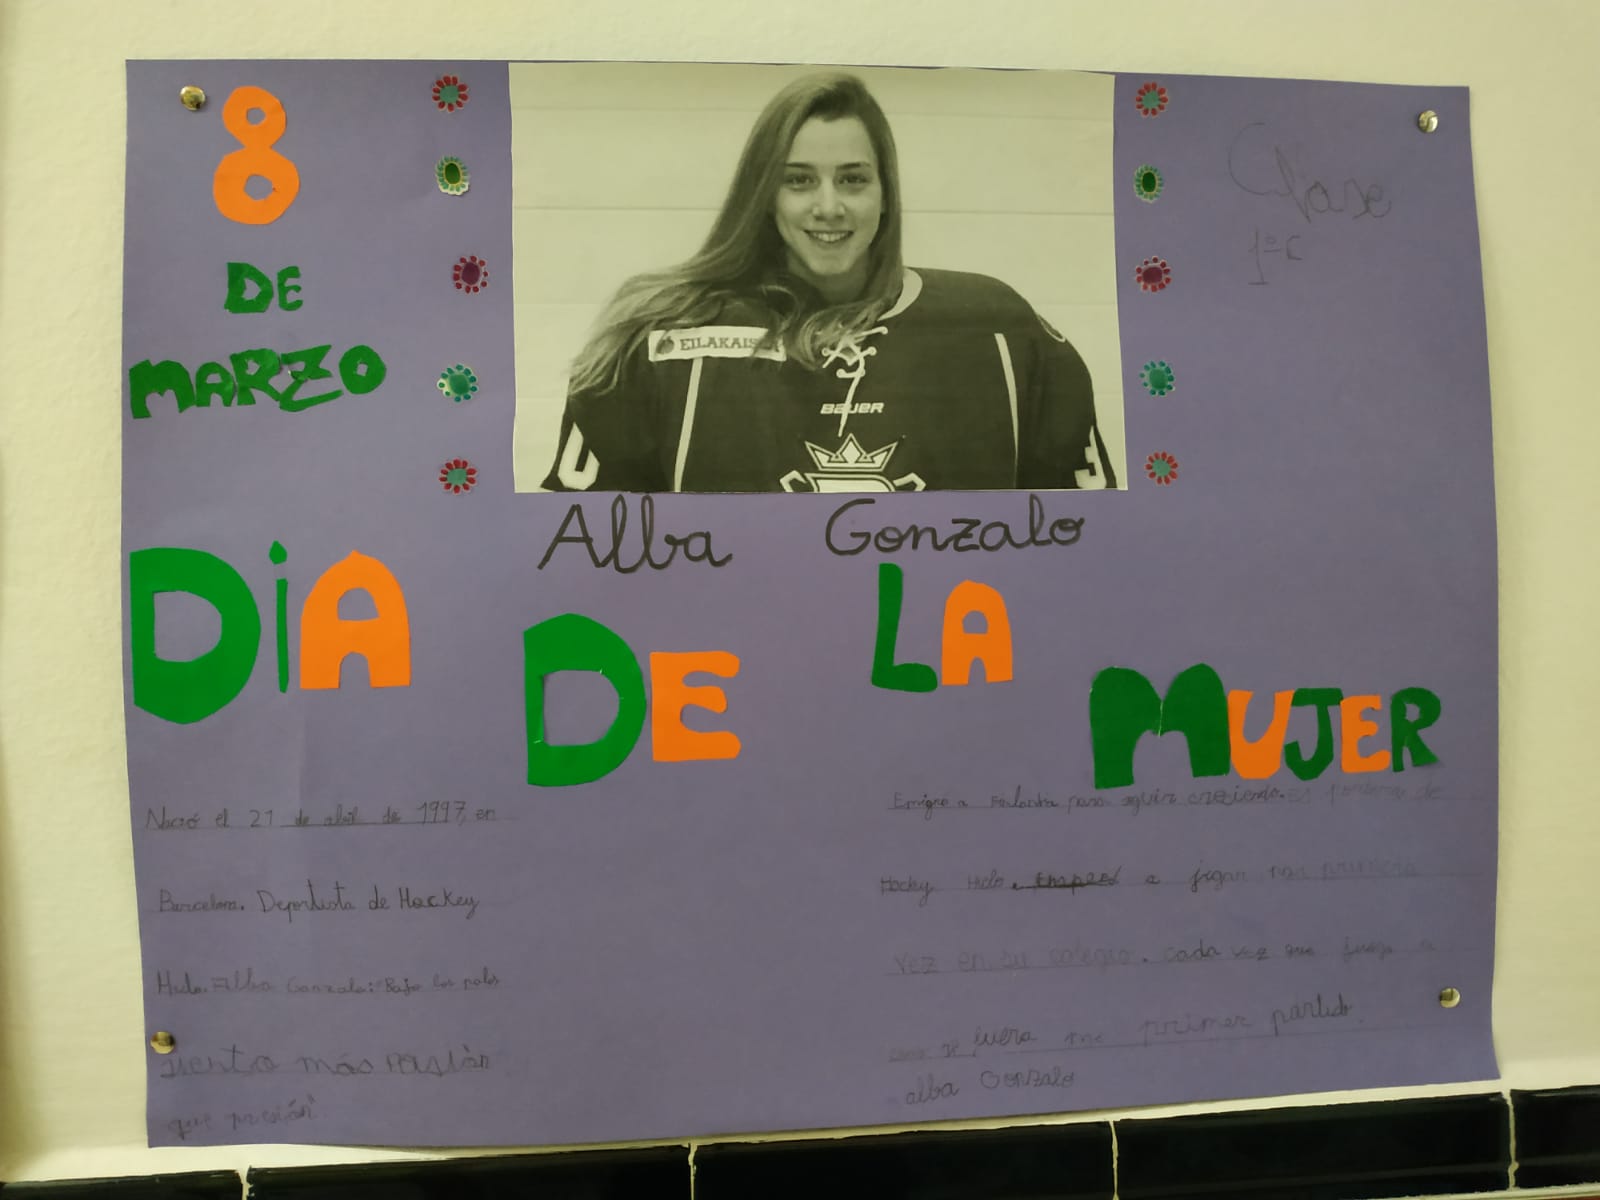 8
DE
MARZO
Clase
1º C
EILAKAIS
BAUER
Alba Gonzalo
DiA DE LA MUJER
Nació el 21 de abril de 1997, en
Barcelona. Deportista de Hockey
Hielo. Alba Gonzalo: "Bajo los palos
siento más pasión
que presión"
Emigró a Finlandia para seguir creciendo. Es portera de
Hocky Hielo. a jugar por primera
vez en su colegio. cada vez que juego a
como si fuera mi primer partido.
alba Gonzalo